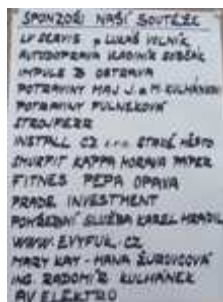 SPONZOŘI NAŠÍ SOUTĚŽE
LV SERVIS LUKÁŠ VOLNÍK
AUTODOPRAVA VLADIMÍR
IMPULS B OSTRAVA
POTRAVINY MAJ J. a M. KULHÁNKOVI
POTRAVINY FULNEKOVÁ
STROJFERR
INSTALL CZ s.r.o. STARÉ MĚSTO
SMURFIT KAPPA MORAVA PAPER
FITNES PEPA OPAVA
PRADE INVESTMENT
POHŘEBNÍ SLUŽBA KAREL HRADIL
WWW.EVYFUK.CZ
MARY KAY - HANA ŽUROVCOVÁ
ING. RADOMÍR KULHÁNEK
AV ELEKTRO